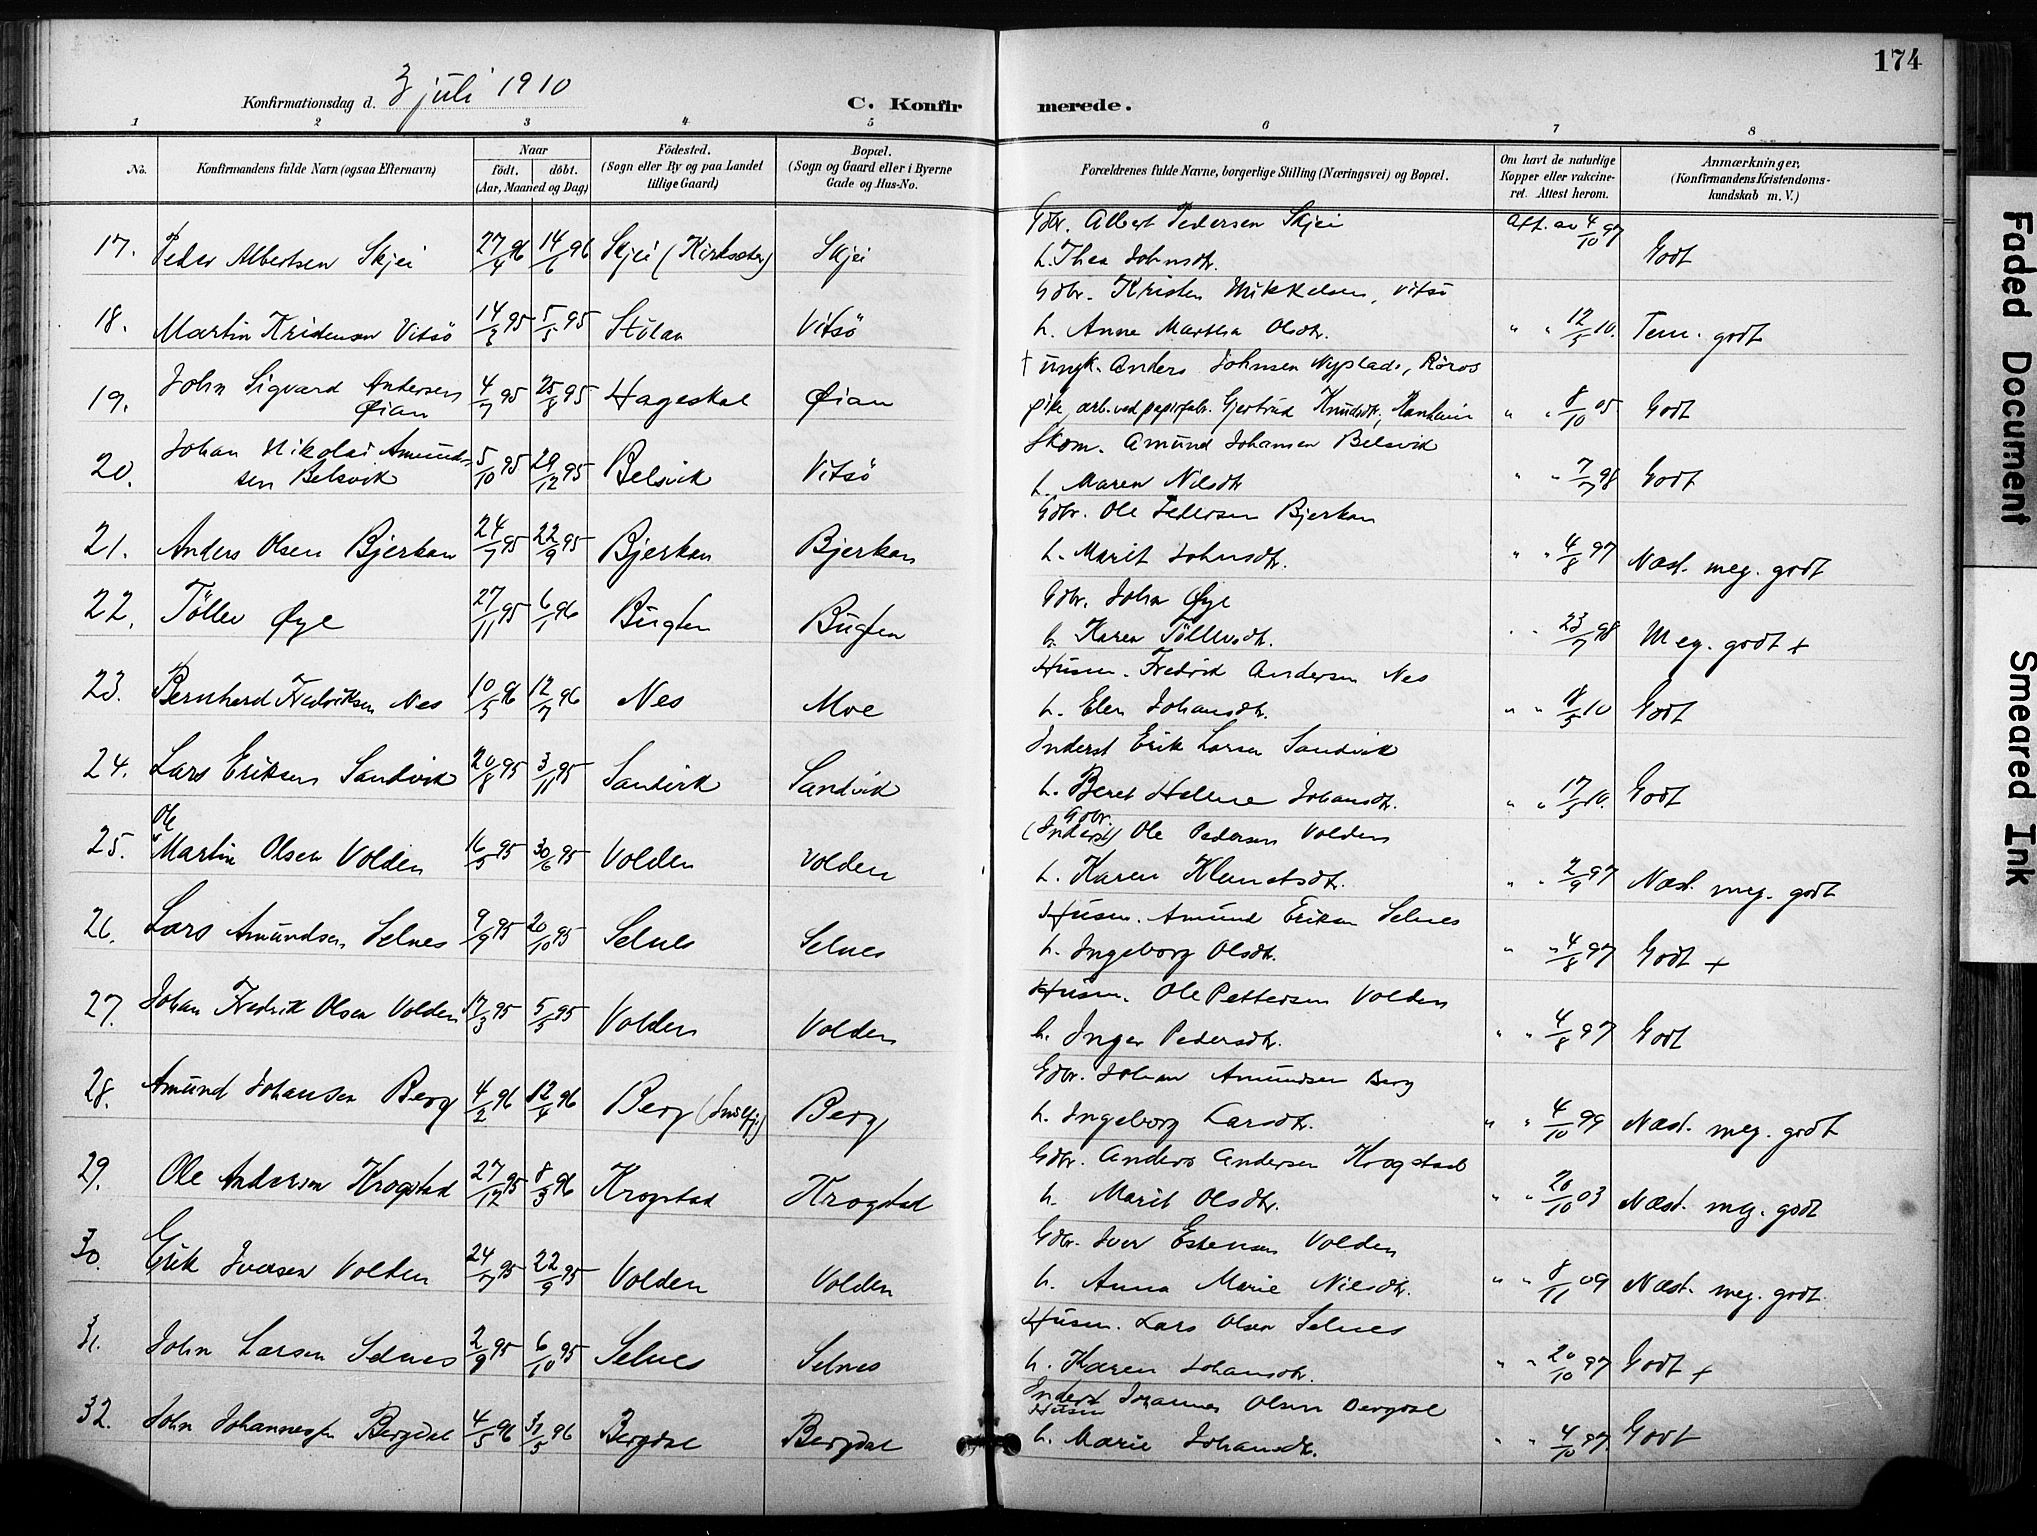 174
Konfirmationsdag d. 3 juli 1910
C. Konfirmerede.
1 2 3 4 5 6 7 8
No.
Konfirmandens fulde Navn (ogsaa Efternavn)
Naar
födt. döbt.
(Aar, Maaned og Dag)
Födested.
(Sogn eller By og paa Landet
tillige Gaard)
Bopæl.
(Sogn og Gaard eller i Byerne
Gade og Hus-No.
Forældrenes fulde Navne, borgerlige Stilling (Næringsvei) og Bopæl.
Om havt de naturlige
Kopper eller vakcine-
ret. Attest herom.
Anmærkninger,
(Konfirmandens Kristendoms-
kundskab m. V.)
Gbr. Albert Pedersen Skjei
17. Peder Albertsen Skjei 27/4 96 14/6 96 Skjei (Kirksæter) Skjei h. Thea Johnsdtr. Att. av 4/10 97 Godt
Gbr. Kristen Mikkelsen, Vitsö
18. Martin Kristensen Vitsö 14/3 95 5/5 95 Stölan Vitsö h. Anne Martha Olsdtr. " " 12/5 10. Tem. godt
† ungk. Anders Johnsen Nyplads, Röros
19. John Sigvard Andersen Øian 4/7 95 25/8 95 Hageskal Øian pike, arb. ved papirfabr. Gjertrud Knudsdtr, Ranheim " " 8/10 05 Godt
Skom. Amund Johansen Belsvik
20. Johan Nikolai Amundsen Belsvik 5/10 95 29/12 95 Belsvik Vitsö h. Maren Nilsdtr " " 7/7 98 Godt
Gbr. Ole Pedersen Bjerkan
21. Anders Olsen Bjerkan 24/7 95 22/9 95 Bjerkan Bjerkan h. Marit Johnsdtr. " " 4/8 97 Næst. meg. godt
Gbr. John Øye
22. Töllev Øye 27/11 95 6/1 96 Bugten Bugten h. Karen Töllevsdtr. " " 23/7 98 Meg. godt +
Husm. Fredrik Andersen Nes
23. Bernhard Fredriksen Nes 10/5 96 12/7 96 Nes Moe h. Elen Johansdtr. " " 8/5 10 Godt
Inderst Erik Larsen Sandvik
24. Lars Eriksen Sandvik 20/8 95 3/11 95 Sandvik Sandvik h. Beret Hellene Johansdtr. " " 17/5 10. Godt
Gbr.
(Inderst) Ole Pedersen Volden
25. Ole Martin Olsen Volden 16/5 95 30/6 95 Volden Volden h. Karen Klanetsdtr. " " 2/9 97 Næst. meg. godt
Husm. Amund Eriksen Selnes
26. Lars Amundsen Selnes 9/9 95 20/10 95 Selnes Selnes h. Ingeborg Olsdtr. " " 4/8 97 Godt +
Husm. Ole Pettersen Volden
27. Johan Fredrik Olsen Volden 17/3 95 5/5 95 Volden Volden h. Inger Pedersdtr. " " 4/8 97 Godt
Gbr. Johan Amundsen Berg
28. Amund Johansen Berg 4/2 96 12/4 96 Berg Berg h. Ingeborg Larsdtr. " " 4/10 99 Næst. meg. godt
Gbr. Anders Andersen Krogstad
29. Ole Andersen Krogstad 27/12 95 8/3 96 Krogstad Krogstad h. Marit Olsdtr. " " 20/10 03 Næst. meg. godt
Gbr. Iver Estensen Volden
30. Erik Iversen Volden 24/7 95 22/9 95 Volden Volden h. Anna Marie Nilsdtr. " " 8/11 09 Næst. meg. godt
Husm. Lars Olsen Selnes
31. John Larsen Selnes 2/9 95 6/10 95 Selnes Selnes h. Karen Johansdtr. " " 20/10 97 Godt +
Inderst
Husm Johannes Olsen Bergdal
32. John Johannessen Bergdal 4/5 96 31/5 96 Bergdal Bergdal h. Marie Johansdtr. " " 4/10 97 Godt
Faded Document
Smeared Ink